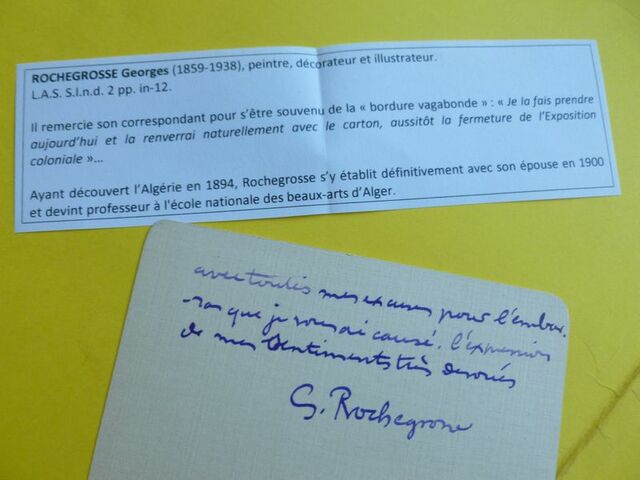 ROCHEGROSSE Georges (1859-1938), peintre, décorateur et illustrateur.
L.A.S. S.l.n.d. 2 pp. in-12.
Il remercie son correspondant pour s'être souvenu de la « bordure vagabonde » : « Je la fais prendre
aujourd'hui et la renverrai naturellement avec le carton, aussitôt la fermeture de l'Exposition
coloniale »...
Ayant découvert l'Algérie en 1894, Rochegrosse s'y établit définitivement avec son épouse en 1900
et devint professeur à l'école nationale des beaux-arts d'Alger.
avec toutes mes excuses pour l'embar-
-ras que je vous ai causé. l'expression
de mes sentiments très dévoués
G. Rochegrosse